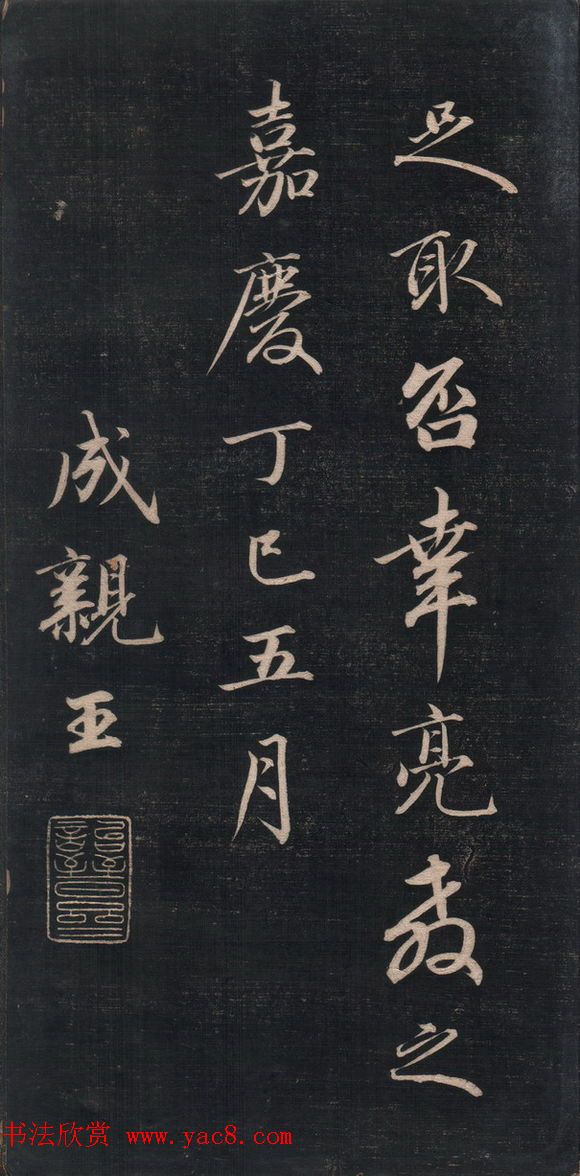 足取否幸亮教之
嘉慶丁巳五月
成親王
书法欣赏 www.yac8.com